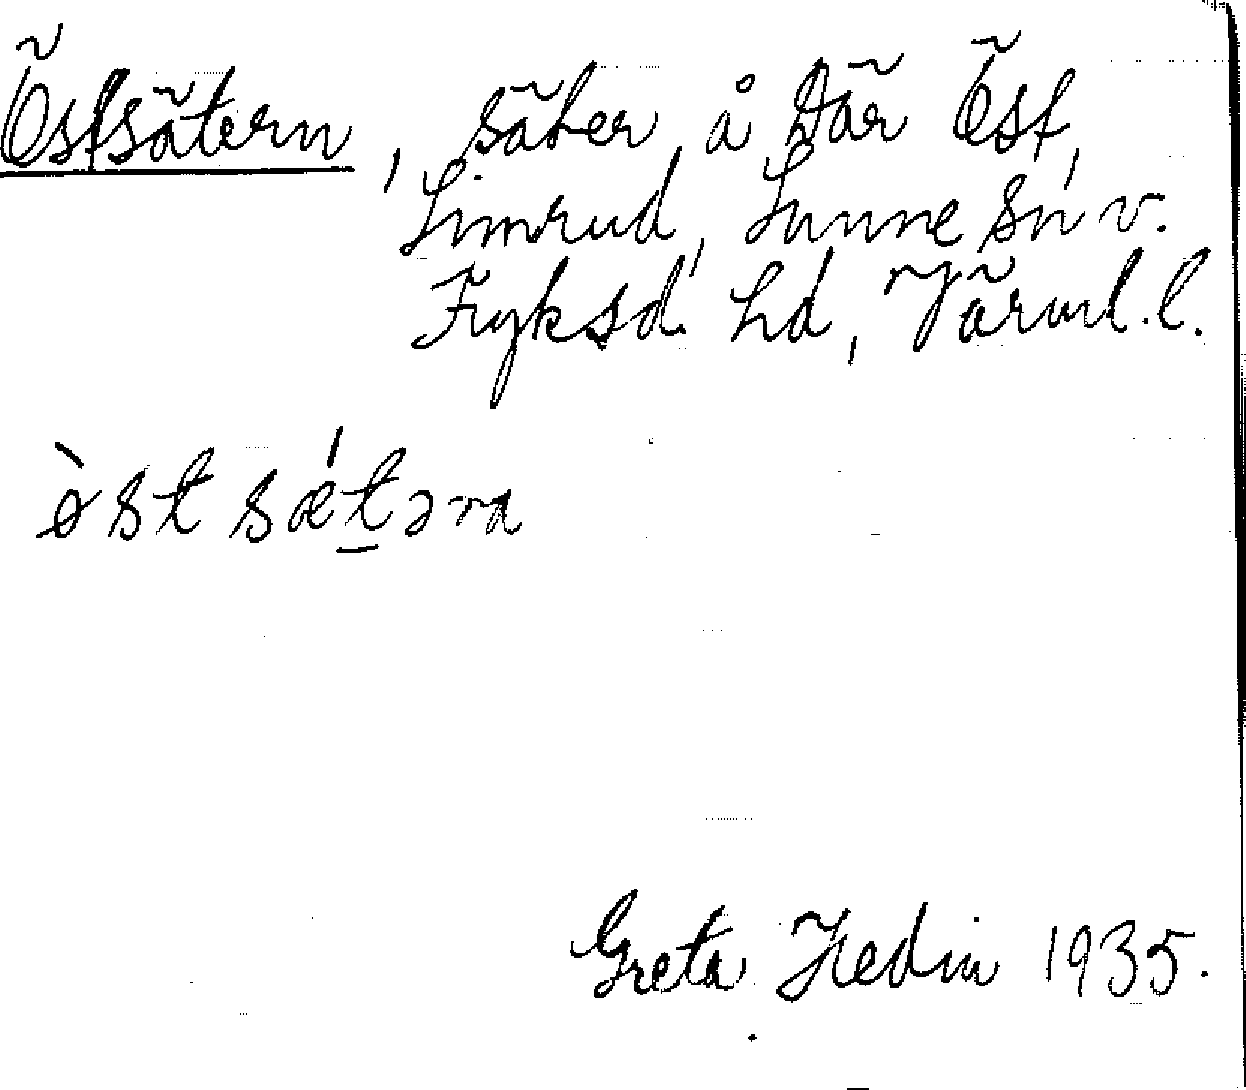 Östsätern, säter å Där Öst,
Simrud, Sunne sn v.
Fryksd. hd, Värml. l.
òst sǽt̲əra
Greta Hedin 1935.